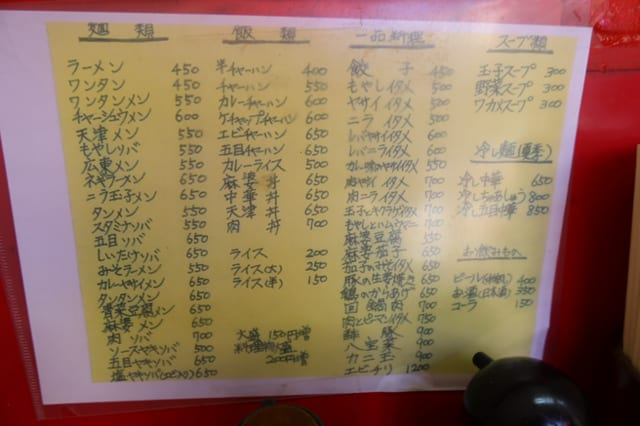 麺類
ラーメン 450
ワンタン 450
ワンタンメン 550
チャーシュウメン 600
天津メン 650
もやしソバ 550
広東メン 650
ネギラーメン 650
ニラ玉子メン 650
タンメン 550
スタミナソバ 550
五目ソバ 650
しいたけソバ 650
みそラーメン 550
カレーヤサイメン 650
タンタンメン 650
麻婆メン 650
肉ソバ 700
ソースヤキソバ 500
五目ヤキソバ 650
塩ヤキソバ(エビ入り) 650
飯類
半チャーハン 400
チャーハン 550
カレーチャーハン 600
ケチャップチャーハン 600
エビチャーハン 650
五目チャーハン 650
カレーライス 500
麻婆丼 650
中華丼 650
天津丼 650
肉丼 700
ライス 200
ライス(大) 250
ライス(半) 150
大盛 150円増
200円増
一品料理
餃子 450
もやしイタメ 550
ヤサイイタメ 550
ニライタメ 600
レバヤサイイタメ 650
レバニライタメ 650
カレー味のヤサイイタメ 650
肉ヤサイイタメ 700
肉ニライタメ 700
玉子とキクラゲイタメ 700
もやしとハムウマニ 700
麻婆豆腐 550
麻婆茄子 650
茄子のみそイタメ 650
豚の生姜焼き 650
鶏のからあげ 650
回鍋肉 700
肉とピーマンイタメ 750
酢豚 900
八宝菜 900
カニ玉 900
エビチリ 1200
スープ類
玉子スープ 300
野菜スープ 300
ワカメスープ 300
冷し麺(夏季)
冷し中華 650
冷しちゃあしゅう 800
冷し五目中華 850
お飲みもの
ビール(中瓶) 400
お酒(日本酒) 350
コーラ 150